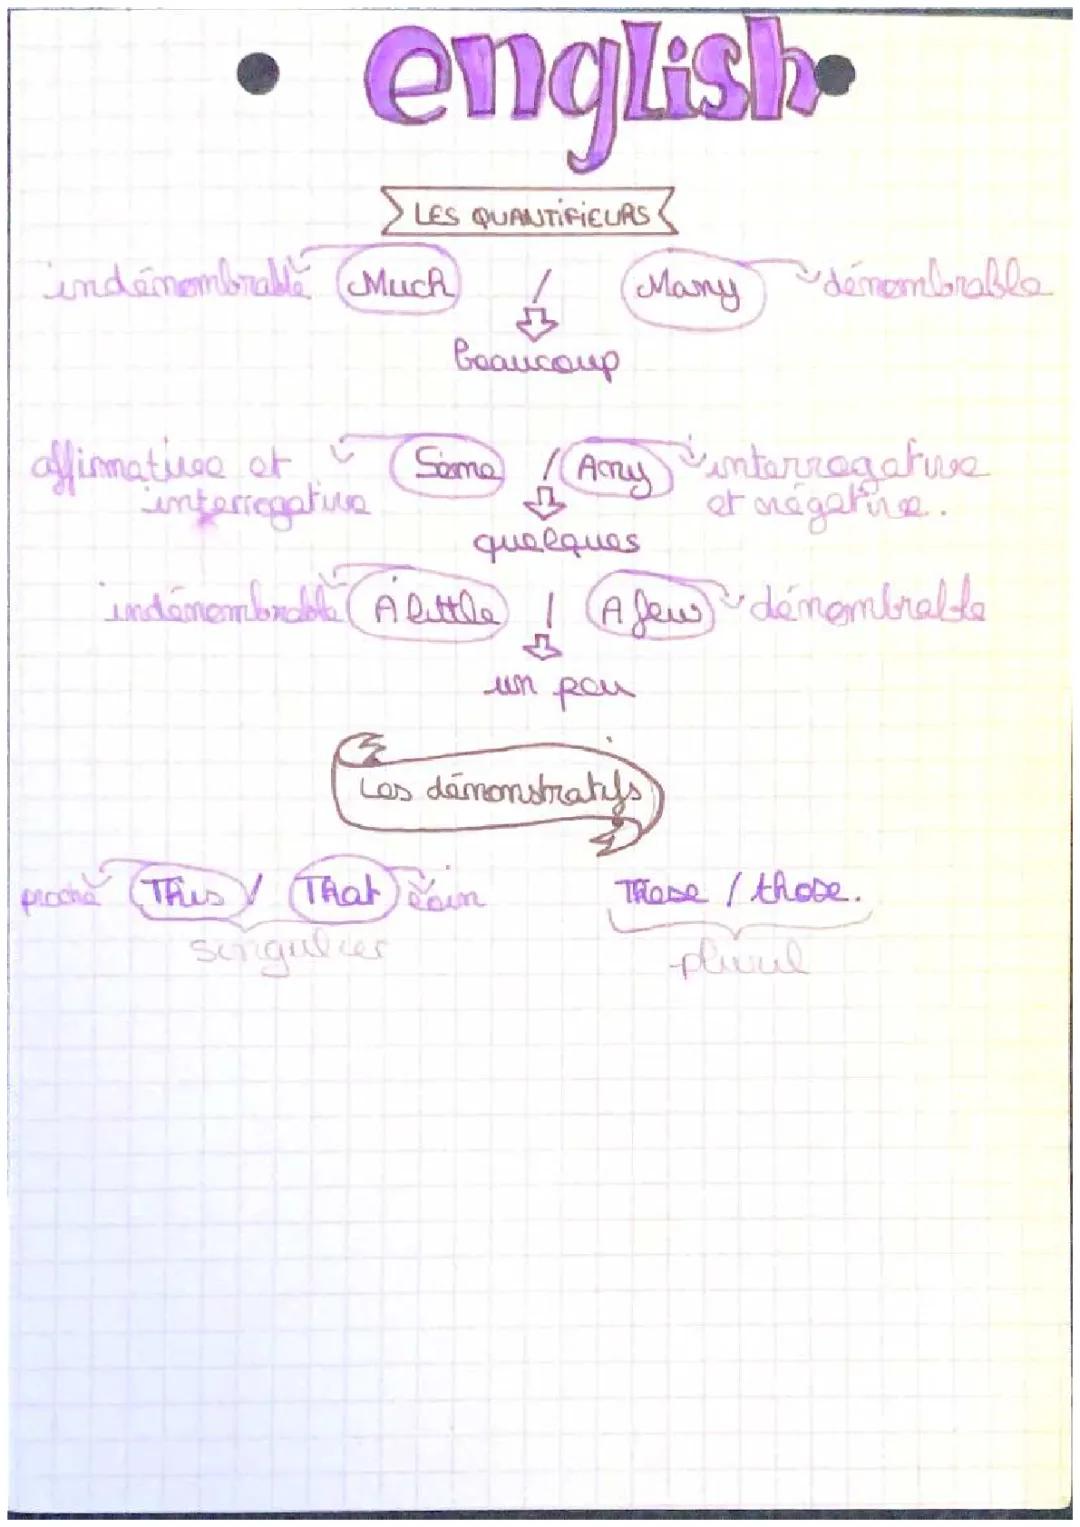 english
LES QUANTIFIEURS
indénombrable Much / Many dénombrable
beaucoup
affirmative et Some / Any interrogative
interrogative et négative.
quelques
indénombrable A little / A few dénombrable
un peu
Les démonstratifs
proche This / That loin These / those.
singulier pluriel